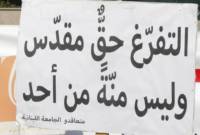 التفرّغ حقٌّ مقدّس
وليس منّة من أحد
متعاقدو الجامعة اللبنانية